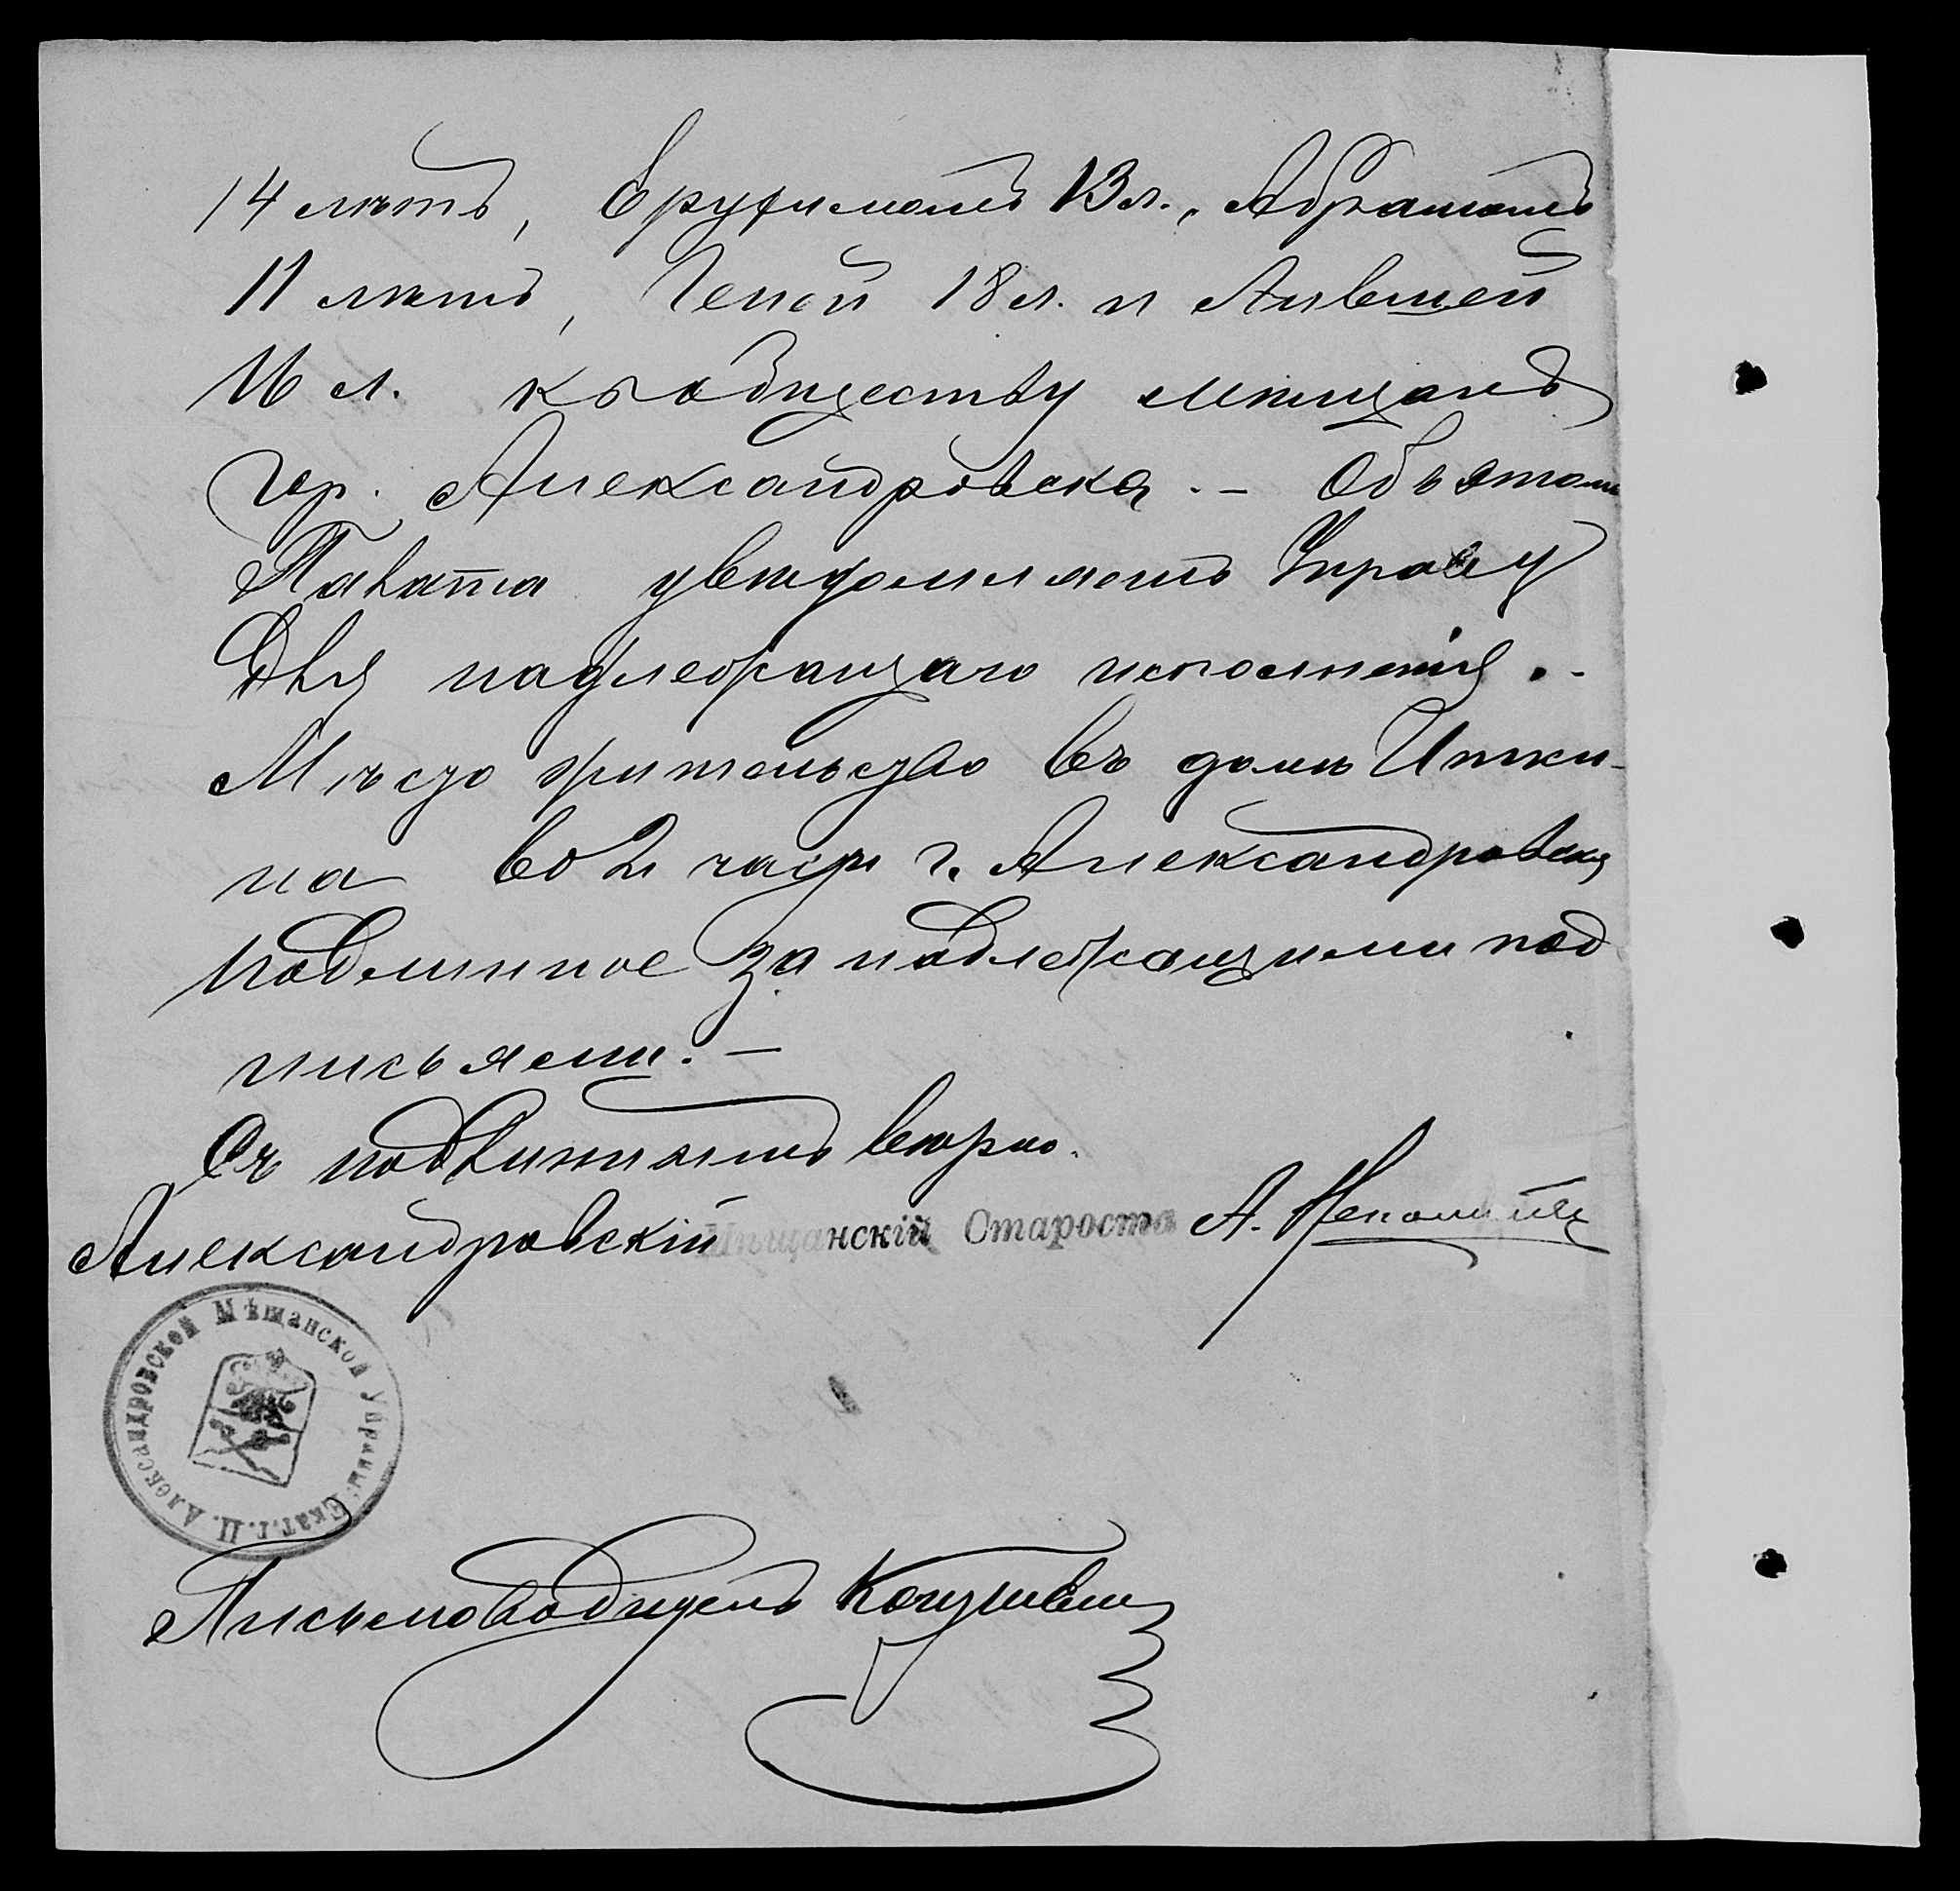 14 лѣтъ, Еруфимомъ 13 л., Абрамомъ
11 лѣтъ, Геней 18 л. и
16 л. къ обществу мѣщанъ
гор. Александровска. — Объ этомъ
Палата увѣдомляетъ Управу
для надлежащаго исполненія. -
Мѣсто жительство въ домѣ Итки-
на во 2 части г. Александровска
подлинное за надлежащими под
письями. —
Съ подлиннымъ вѣрно.
Александровскій Мѣщанскій Староста А.
Александровской Мѣщанской Управы Екат. г. П.
Письмоводитель